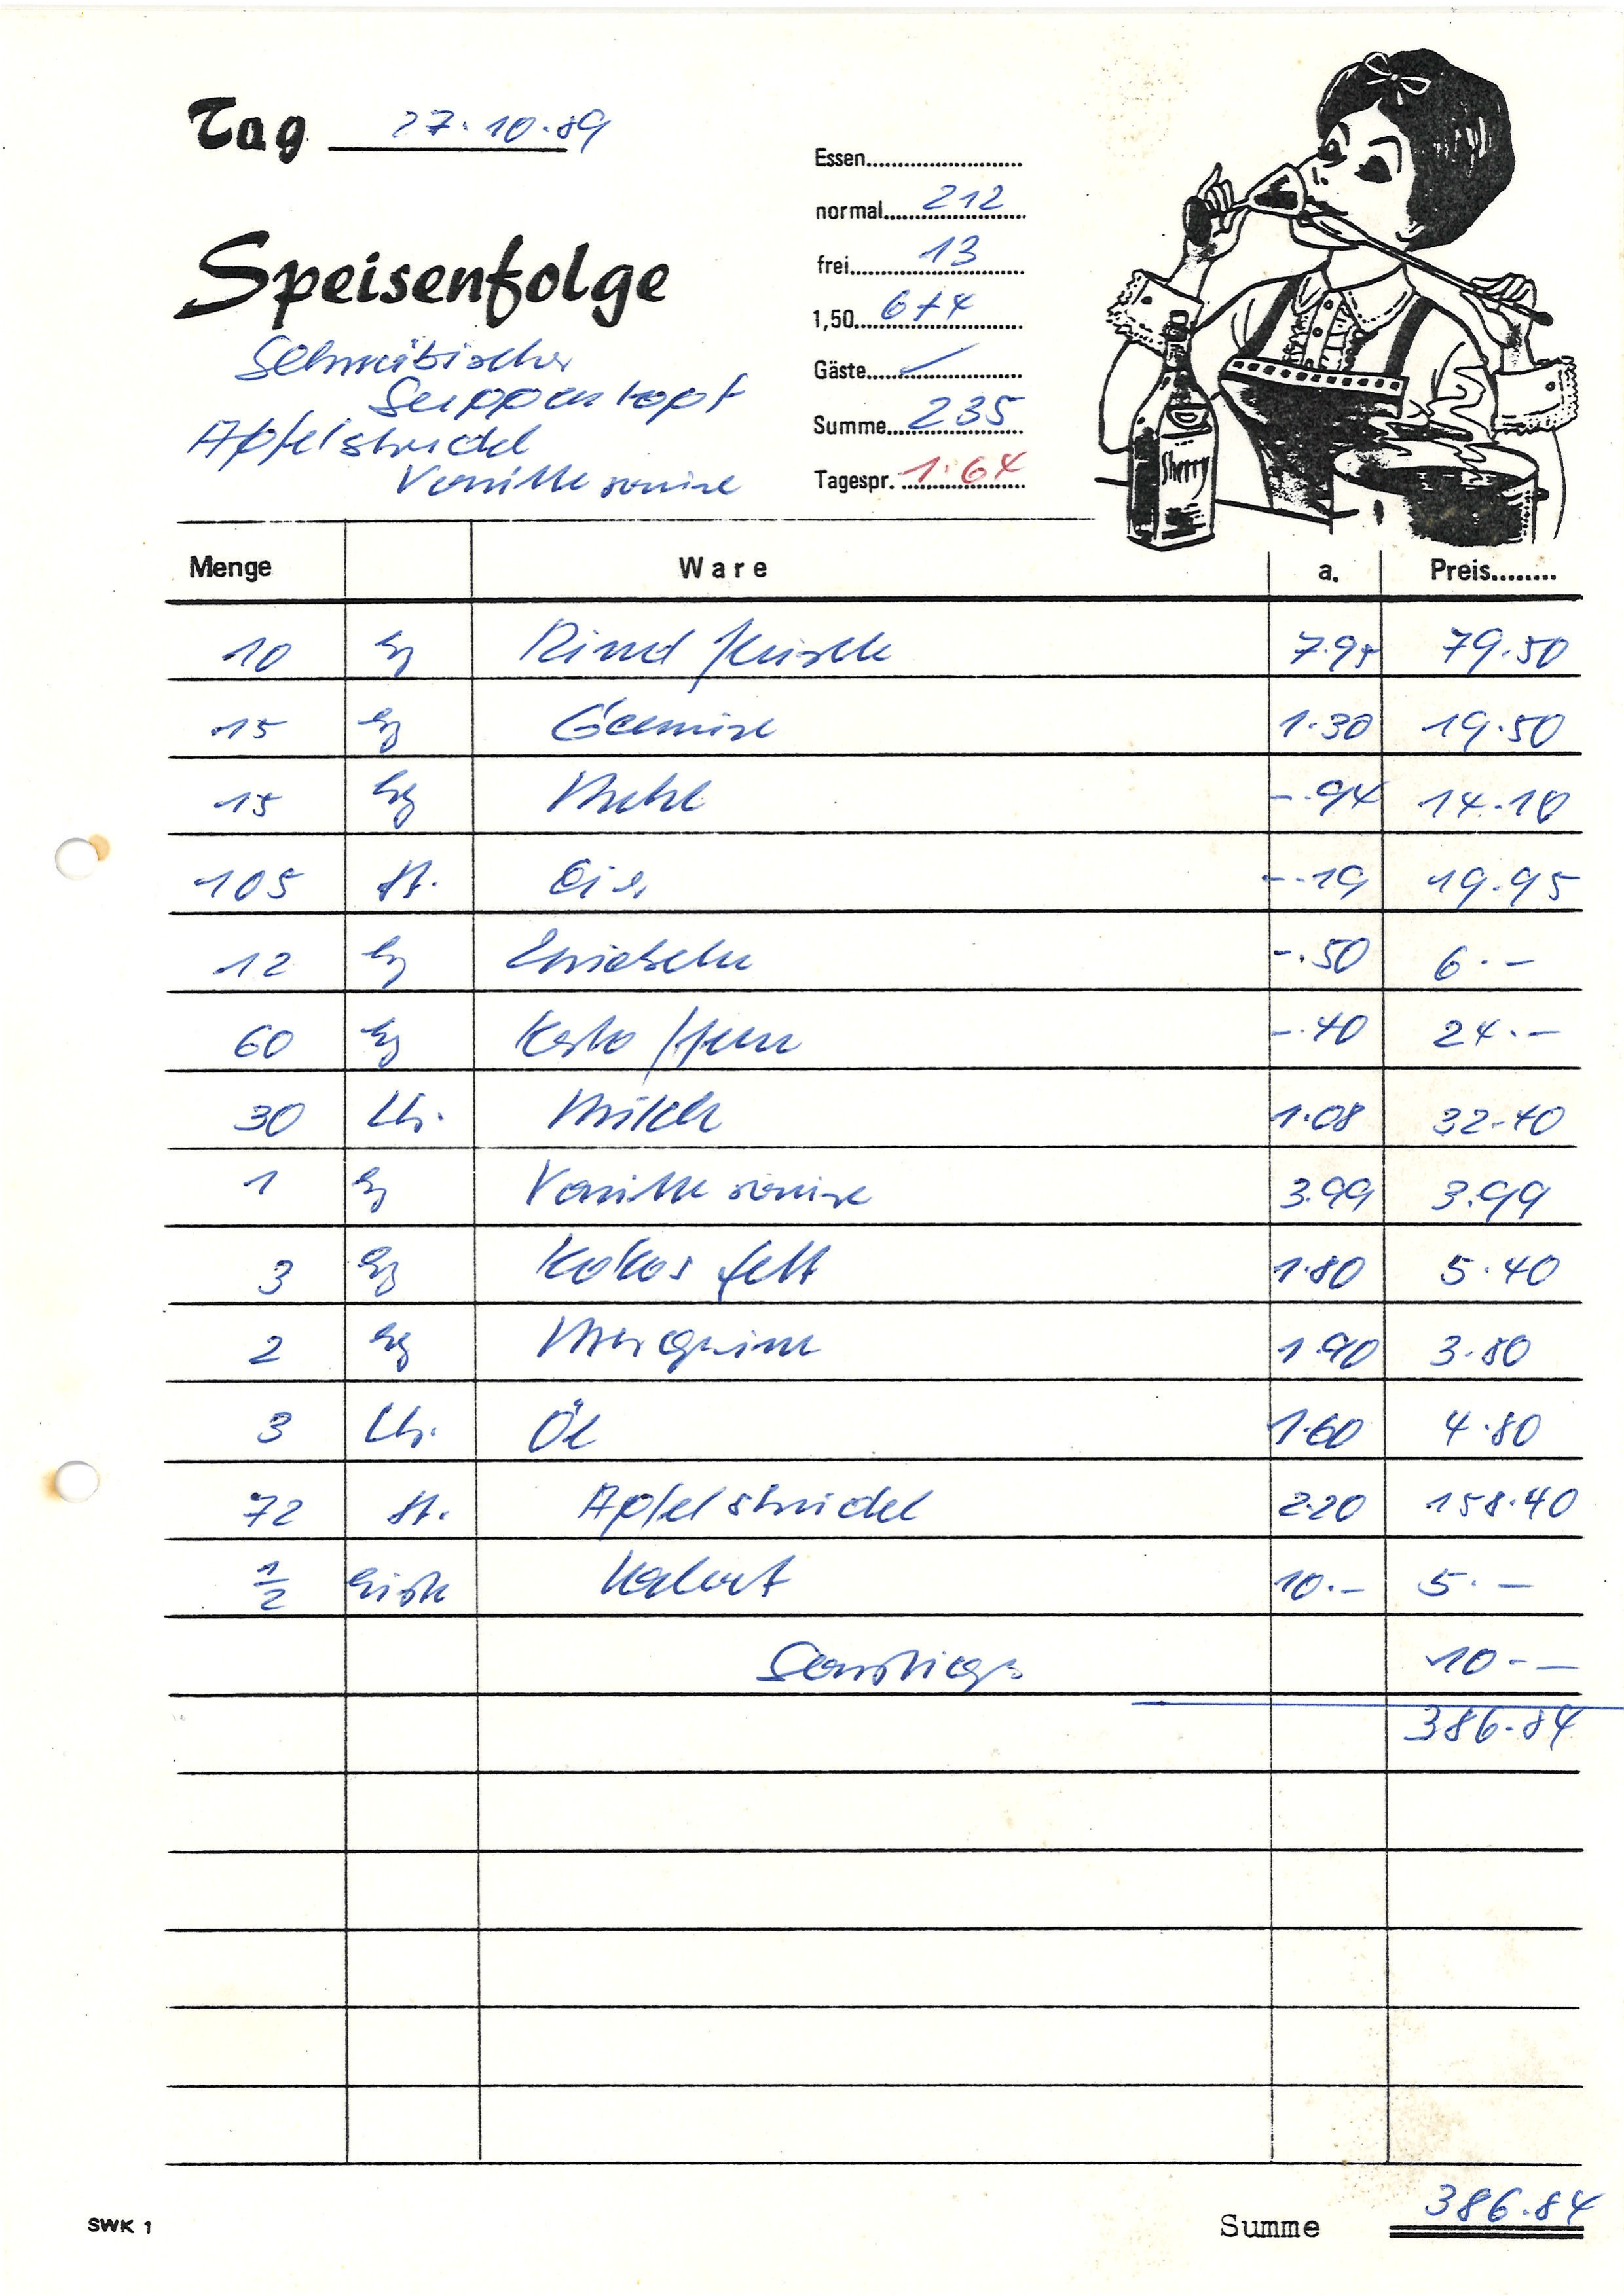 Tag 27.10.89
Speisenfolge
Schwäbischer
Suppentopf
Apfelstrudel
Vanillesauce
Essen
normal 212
frei 13
1,50 6+4
Gäste
Summe 235
Tagespr. 1.64
Sherry
Menge Ware a. Preis
10 kg Rindfleisch 7.95 79.50
15 kg Gemüse 1.30 19.50
15 kg Mehl -.94 14.10
105 St. Eier -.19 19.95
12 kg Zwiebeln -.50 6.-
60 kg Kartoffeln -.40 24.-
30 Ltr. Milch 1.08 32.40
1 kg Vanillesauce 3.99 3.99
3 kg Kokosfett 1.80 5.40
2 kg Margarine 1.90 3.80
3 Ltr. Öl 1.60 4.80
72 St. Apfelstrudel 2.20 158.40
1/2 Kiste 10.- 5.-
Sonstiges 10.-
386.84
SWK 1 Summe 386.84